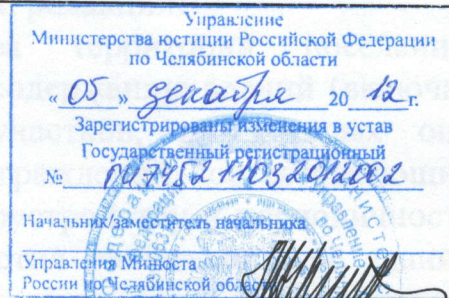 Управление
Министерства юстиции Российской Федерации
по Челябинской области
«05» декабря 2012г.
Зарегистрированы изменения в устав
Государственный регистрационный
№ RU745211032012002
Начальник/заместитель начальника
Управления Минюста
России по Челябинской области